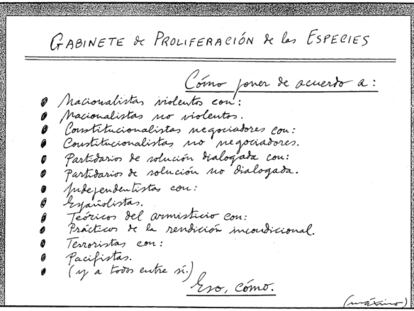 GABINETE de PROLIFERACIÓN de las ESPECIES
Cómo poner de acuerdo a:
Nacionalistas violentos con:
Nacionalistas no violentos.
Constitucionalistas negociadores con:
Constitucionalistas no negociadores.
Partidarios de solución dialogada con:
Partidarios de solución no dialogada.
Independentistas con:
Españolistas.
Teóricos del armisticio con:
Prácticos de la rendición incondicional.
Terroristas con:
Pacifistas.
(y a todos entre sí.)
Eso, cómo.
(máximo)